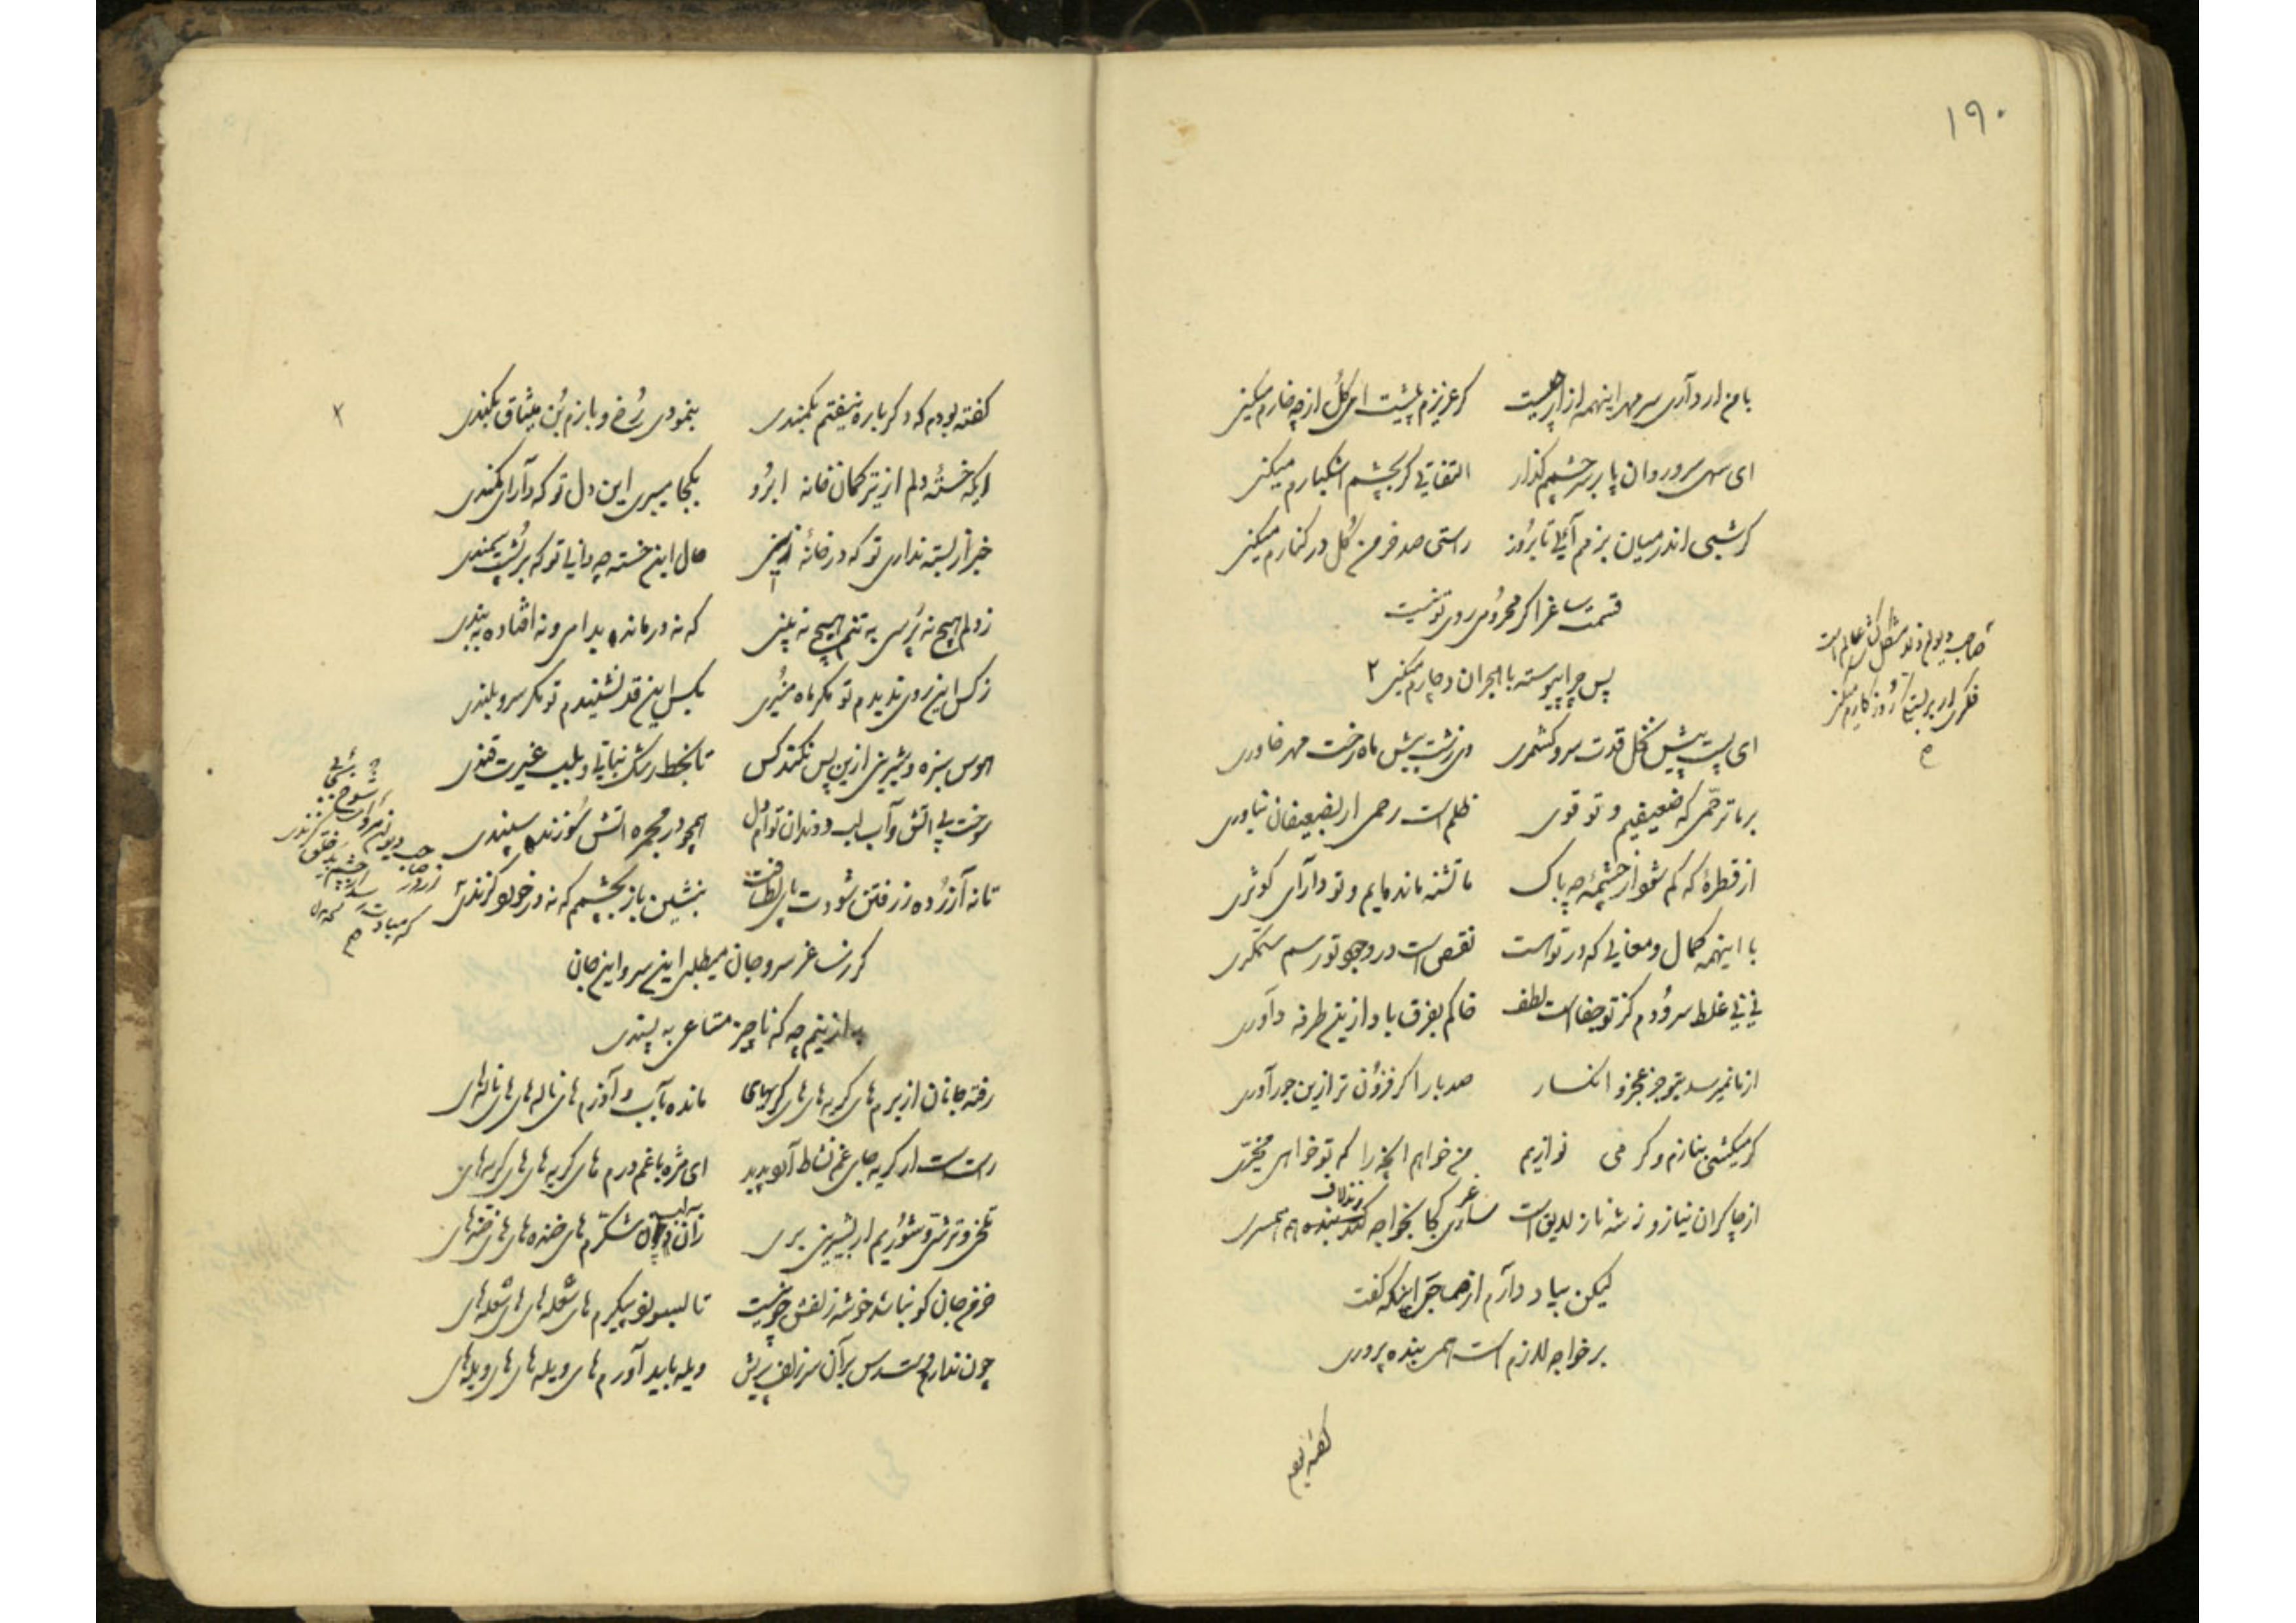 ۱۹۰
با من ار داری سر مهر اینهمه ازار چیست گر عزیزم پیشت ای گل از چه خارم میکنی
ای سهی سرو روان پا بر سر چشمم گذار التفاتی گر بچشم اشکبارم میکنی
گر شبی اندر میان بزم آئی تا بروز راستی صد خرمن گل در کنارم میکنی
قسمت ساغر اگر محرومی روی تو نیست
پس چرا پیوسته با هجران دچارم میکنی ۲
صاحب دیوانی و تو مشکل گشای عالم است
فکری ار بر بستگی روز کارم میکنی
ای پست پیش نخل قدت سرو کشمری وی زشت پیش ماه رخت مهر خاوری
بر ما ترحمی که ضعیفیم و تو قوی ظلم است رحمی ار بضعیفان نیاوری
از قطرهٔ که کم شود از چشمهٔ چه باک ما تشنه مانده‌ایم و تو دارای کوثری
با اینهمه کمال و معانی که در تو است نقص است در وجود تو رسم ستمگری
نی نی غلط سرودم کز تو جفاست لطف خاکم بفرق باد ازین طرفه داوری
از ما نمیرسد بتو جز عجز و انکسار صد بار اگر فزون تر ازین جور آوری
گر میکشی بنازم و گر می نوازیم من خواهم آنچه را که تو خواهی مخیری
از چاکران نیاز و ز شه ناز لایق است ساغر کجا بخواجه کند بنده همسری
لیکن بیاد دارم از صاحب اینکه گفت
بر خواجه لازم است همی بنده پروری
گفته بودم
گفته بودم که دگر باره نیفتم بکمندی بنمودی رخ و بازم بن میثاق بکندی
ایکه خستهٔ دلم از تیر کمان خانه ابرو بکجا میبری این دل تو که دارای کمندی
خبر از بسته نداری تو که در خانهٔ زینی حال این خسته چه دانی تو که بر پشت سمندی
ز دلم هیچ نه پرسی به تنم هیچ نه بینی که نه درمانده بدامی و نه افتاده به بندی
ز کس این روی ندیدم تو مگر ماه منیری بکس این قد نشنیدم تو مگر سرو بلندی
هوس سبزه و شیرینی ازین پس نکند کس تا بخط رشک نباتی و بلب غیرت قندی
سوخت بی آتش و آب لب و دندان تو ام دل همچو در مجمره آتش سوزنده سپندی
تا نه آزرده ز رفتن شودت پای لطافت بنشین باز بچشمم که نه در خورد گزندی
گر ز ساغر سر و جان میطلبی این سر و این جان
به ازینم چه که ناچیز متاعی به پسندی
رفته جانان از برم های گریه های های گریه‌های مانده با تب و آذرم های ناله های های ناله‌های
راست است ار گریه جای غم نشاط آرد پدید ای مژه با غم درم های گریه های های گریه‌های
تلخی و ترشی و شوریم ار بشیرینی بری زان لب چون شکرم های خنده های های خنده‌های
خرمن جان کو نباشد خوشه زلفش چو نیست تا بسوزد پیکرم های شعله های های شعله‌های
چون ندارم دسترس بر آن سر زلف پریش ویله باید آورم های ویله های های ویله‌های